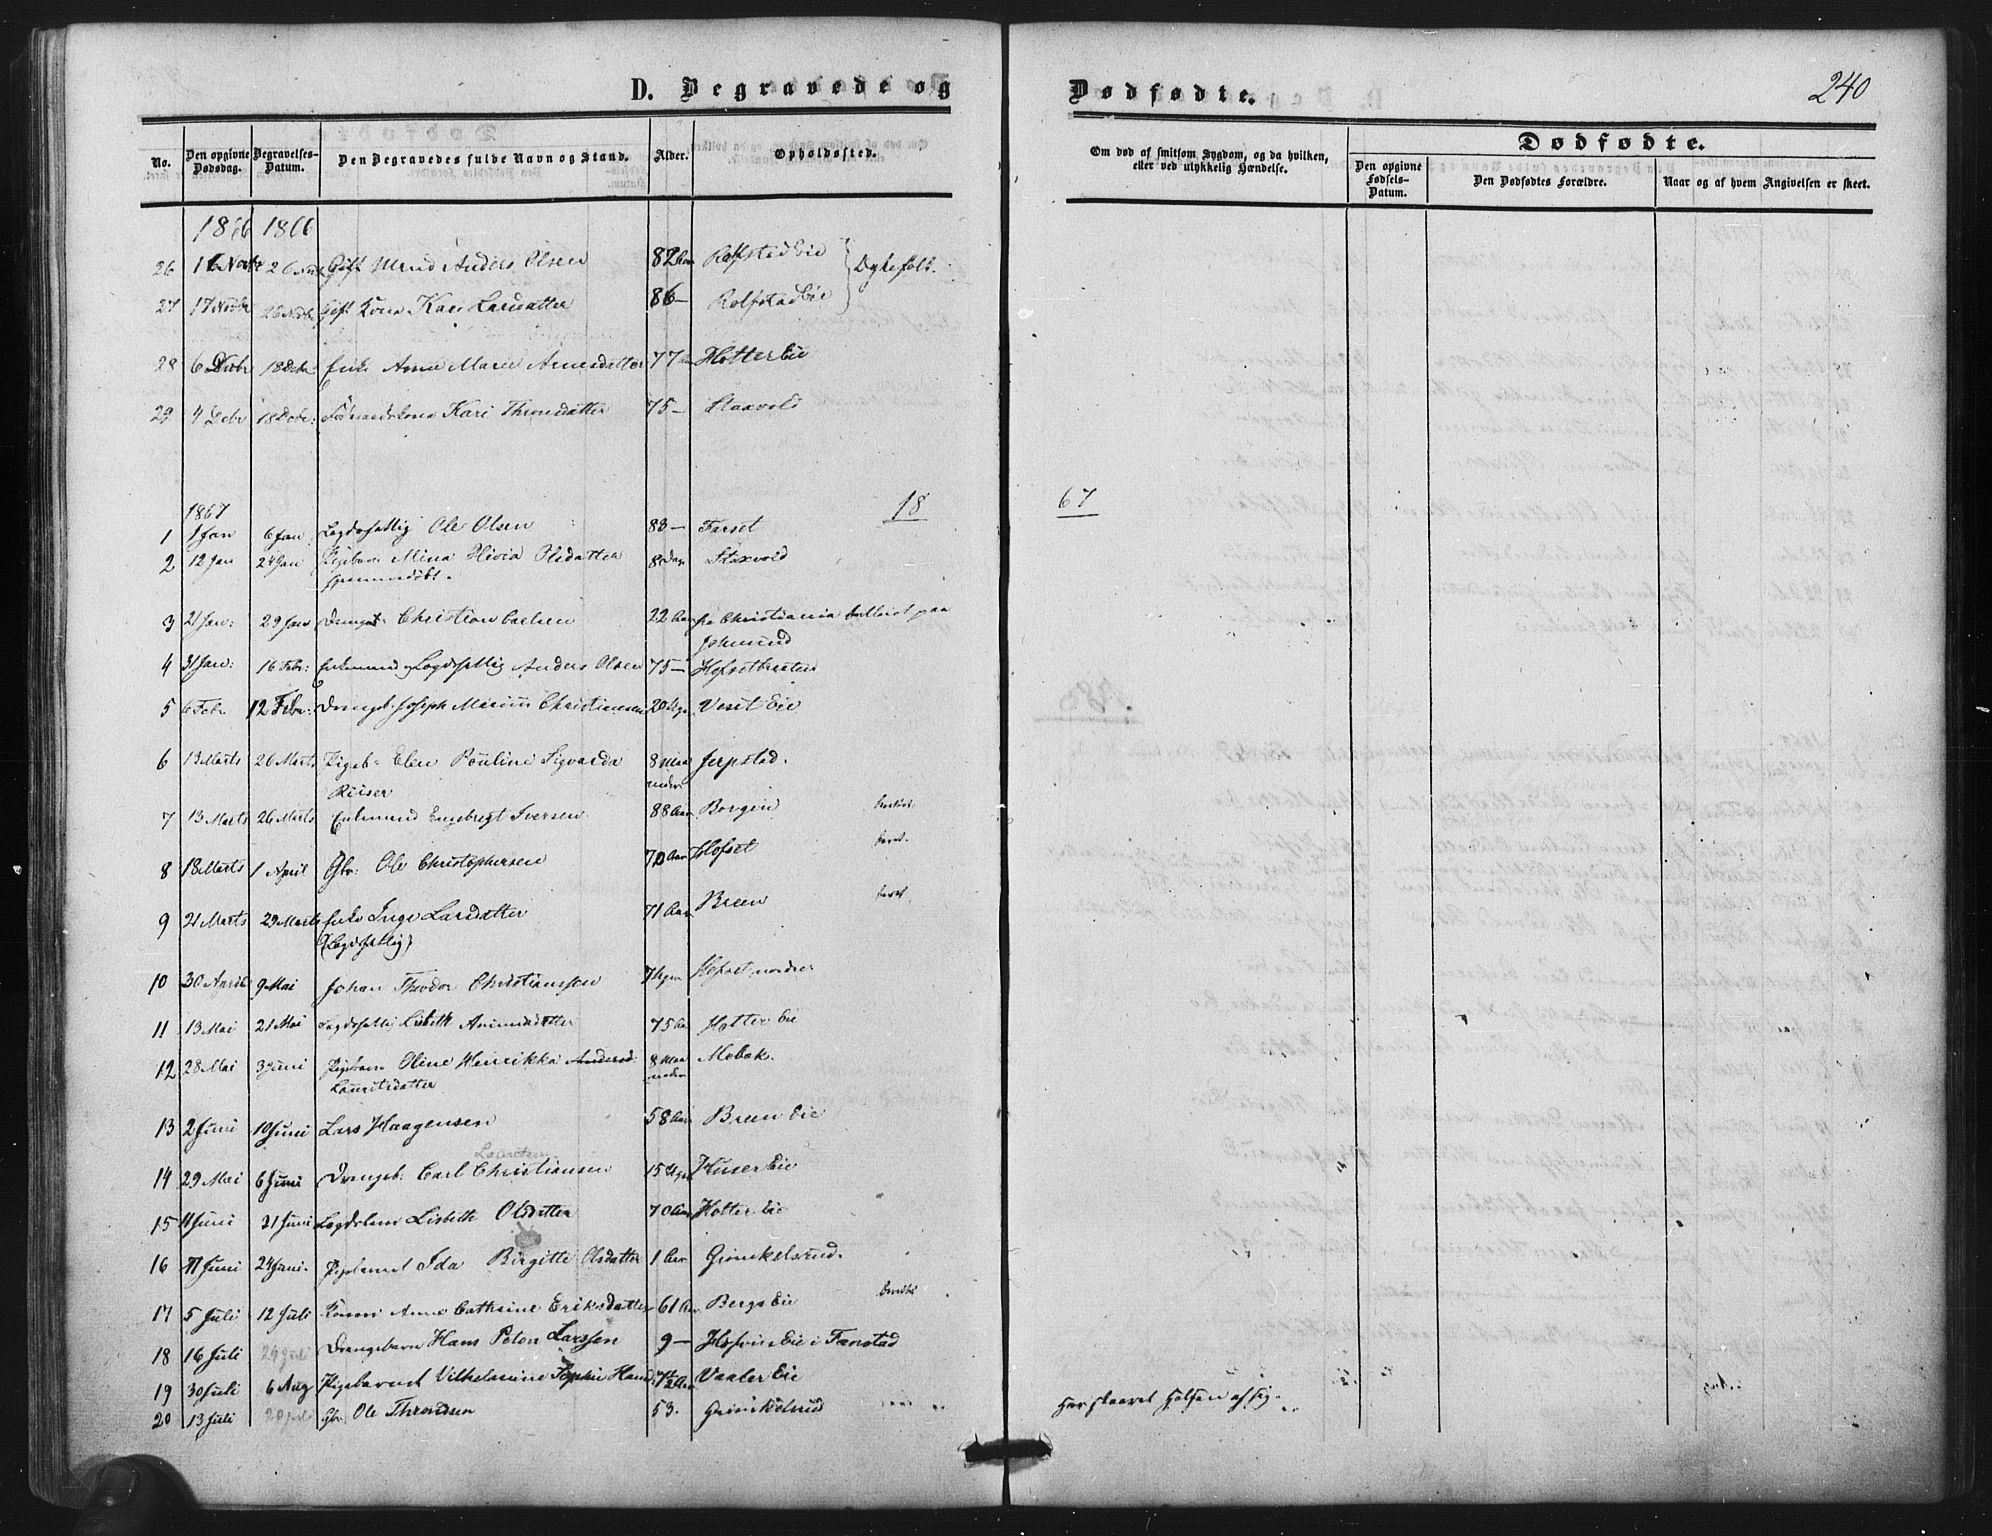 D. Begravede og
No. Den opgivne Dødsdag. Begravelses-Datum. Den Begravedes fulde Navn og Stand. Alder. Opholdssted.
1866 1866
26 16 Novbr 26 Nov Gift Mand Anders Olsen 82 Aar Rolfstad Eie
27 17 Novbr 26 Novbr Gift Kona Kari Larsdatter 86 — Rolfstad Eie
28 6 Decbr 18 Decbr Enke Anne Marie Arnesdatter 77 Hotter Eie
29 4 Decbr 18 Decbr: Kari Throndsdatter 75 — Staxvold
18
1867
1 1 Jan 6 Jan Lægdsfattig Ole Olsen 83 — Farset
2 12 Jan 24 Jan Pigebarn Mina Olivia Olsdatter 8 Dage Staxvold
hjemmedøbt.
3 21 Jan: 29 Jan Christian Carlsen 22 Aar fra Christiania paa
4 31 Jan: 16 Febr: Enkemand og Lægdsfattig Anders Olsen 75 — Hofsetbraaten
5 6 Febr 12 Febr: Drengeb. Joseph Marius Christiansen 20 Uger Eie
6 13 Marts 26 Marts Pigeb. Elen Pouline Sigvarda 8 Maa Jerpstad.
Riiser neder
7 13 Marts 26 Marts Enkemand Engebregt Iversen 88 Aar Borgen
8 18 Marts 1 April Gbr: Ole Christophersen 70 Aar Hofset
9 21 Marts 29 Marts Enke Inge Larsdatter 71 Aar Breen
(Lægdsfattig)
10 30 April 9 Mai Johan Theodor Christianssen 7 Uger Hofset nordre
11 13 Mai 21 Mai Lægdsfattig Lisbeth Amundsdatter 75 Aar Hotter Eie
12 28 Mai 3 Juni Pigebarn Oline Henrikka 8 Maa Mobak.
Lauritsdatter neder
13 2 Juni 10 Juni Lars Haagensen 58 Aar Breen Eie
14 29 Mai 6 Juni Drengeb: Carl Christiansen 15 Uger Huser Eie
15 11 Juni 21 Juni Lægdslem Lisbeth Olsdatter 70 Aar Hotter Eie
16 17 Juni 24 Juni. Pigebarnet Ida Birgitte Olsdatter 1 Aar Grinikelsrud.
17 5 Juli 12 Juli Konen Anne Cathrine Eriksdatter 61 Aar Bergs Eie
18 16 Juli Drengebarn Hans Peter Larssen 9 — Eie i Fanstad
19 30 Juli 6 Aug Pigebarnet Vilhelmine Sophie Hansd. 7½ Aar Vaaler Eie
20 13 Juli Gbr. Ole Throndsen 53. Grinikelsrud
Dødfødte.
240
Om død af smitsom Sygdom, og da hvilken, eller ved ulykkelig Hændelse.
Dødfødte.
Den opgivne Fødsels-Datum. Den Dødfødtes Forældre. Naar og af hvem Angivelsen er skeet.
67
Har skaaret Halsen af sig.